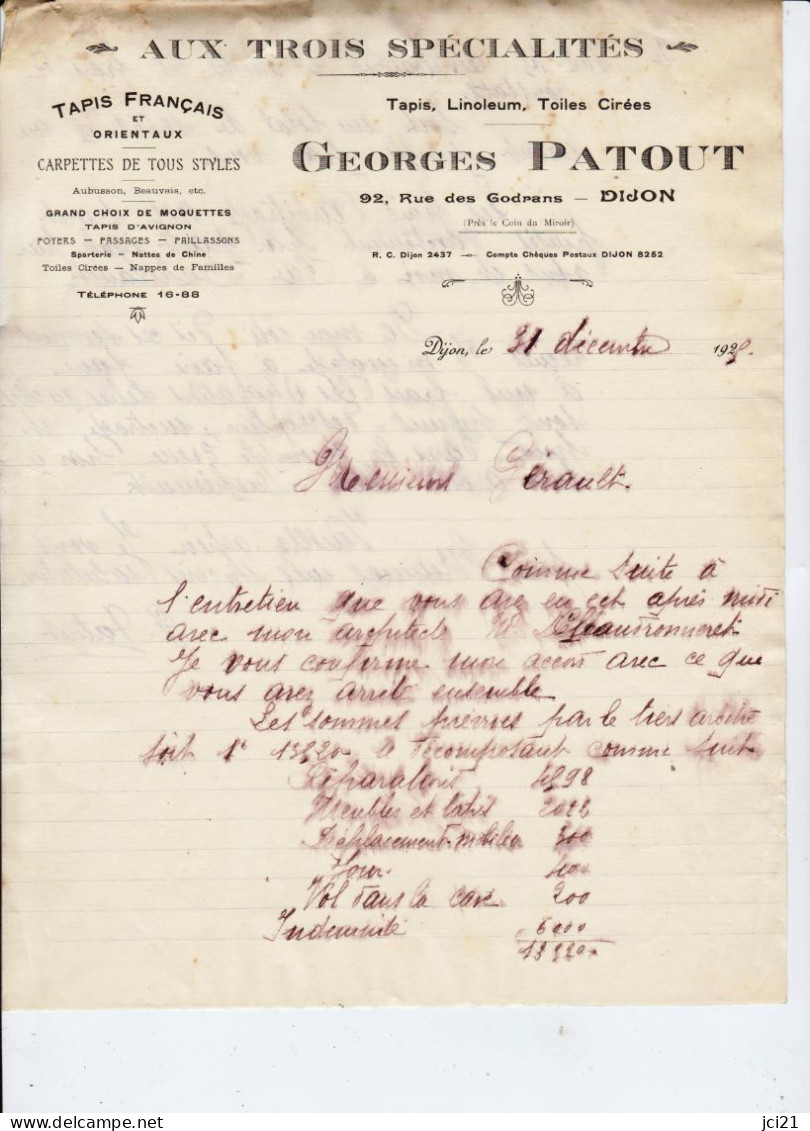 AUX TROIS SPÉCIALITÉS
TAPIS FRANÇAIS
ET
ORIENTAUX
CARPETTES DE TOUS STYLES
Aubusson, Beauvais, etc.
GRAND CHOIX DE MOQUETTES
TAPIS D'AVIGNON
FOYERS — PASSAGES — PAILLASSONS
Sparterie — Nattes de Chine
Toiles Cirées — Nappes de Familles
TÉLÉPHONE 16-88
Tapis, Linoleum, Toiles Cirées
GEORGES PATOUT
92, Rue des Godrans — DIJON
(Près le Coin du Miroir)
R. C. Dijon 2437 — Compte Chèques Postaux DIJON 8252
Dijon, le 31 décembre 192
Messieurs Gérault.
Comme suite à
l'entretien que vous avez eu cet après midi
avec mon architecte Mr
Je vous confirme mon accord avec ce que
vous avez arrêté ensemble
Les sommes prévues par le tiers arbitre
soit 1° se décomposant comme suit
Réparations
Meubles et tapis 2022
Déplacement mobilier 300
400
Vol dans la cave 200
Indemnité 6000
jci21